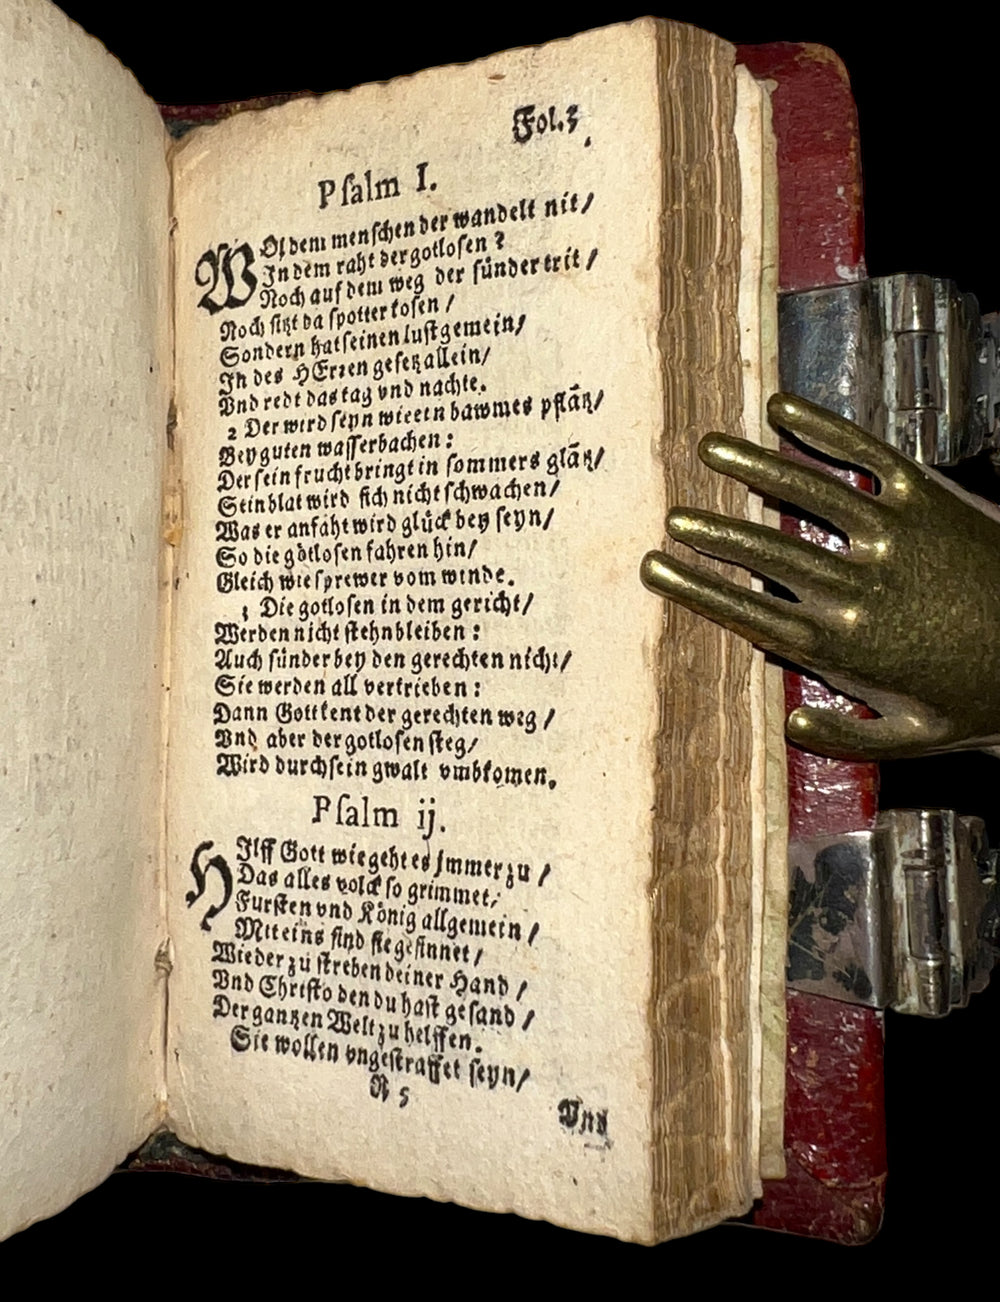 Fol.3
Psalm I.
WOl dem menschen der wandelt nit/
In dem raht der gotlosen?
Noch auf dem weg der sünder trit/
Noch sitzt da spotter kosen/
Sondern hat seinen lust gemein/
In des HErren gesetz allein/
Vnd redt das tag vnd nachte.
2 Der wird seyn wie ein bawmes pflãtz/
Bey guten wasserbachen:
Der sein frucht bringt in sommers glãtz/
Sein blat wird sich nicht schwachen/
Was er anfäht wird glück bey seyn/
So die gotlosen fahren hin/
Gleich wie sprewer vom winde.
3 Die gotlosen in dem gericht/
Werden nicht stehn bleiben:
Auch sünder bey den gerechten nicht/
Sie werden all vertrieben:
Dann Gott kent der gerechten weg/
Vnd aber der gotlosen steg/
Wird durch sein gwalt vmbkomen.
Psalm ij.
HIlff Gott wie geht es jmmer zu/
Das alles volck so grimmet/
Fursten vnd König allgemein/
Mit eins sind sie gesinnet/
Wieder zu streben deiner Hand/
Vnd Christo den du hast gesand/
Der gantzen Welt zu helffen.
Sie wollen vngestraffet seyn/
R 5
Vnd